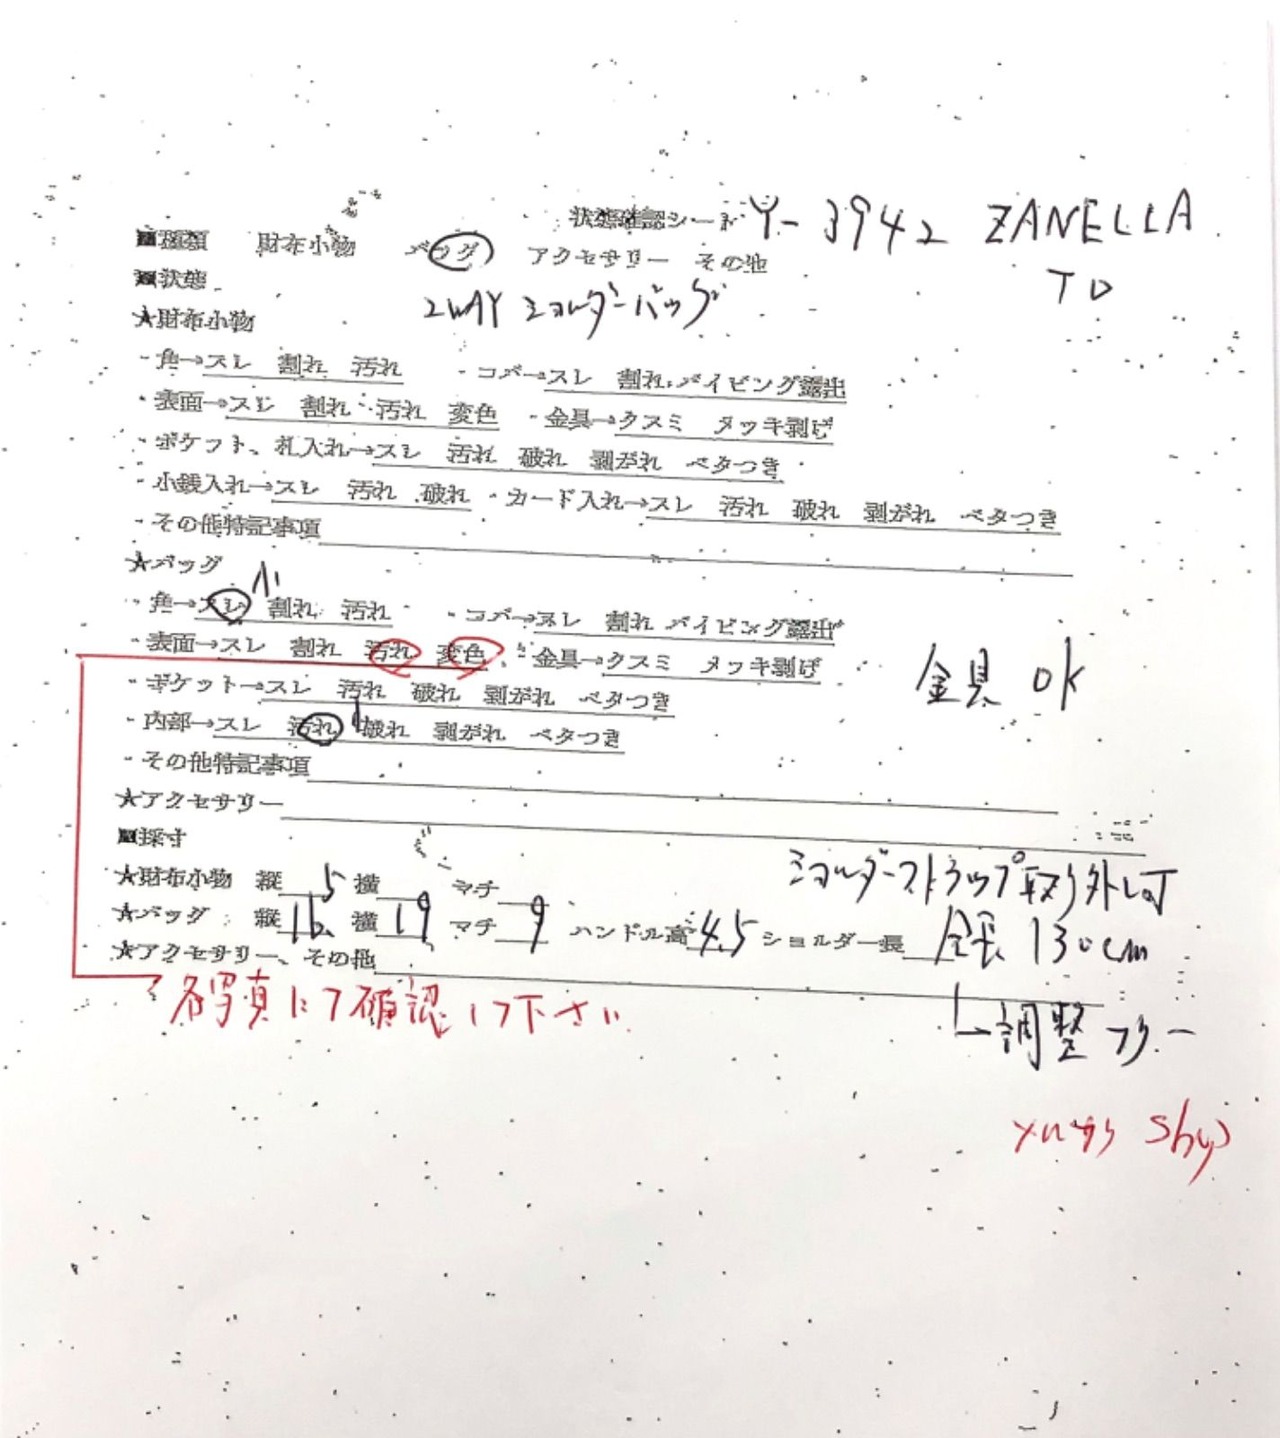 状態確認シート Y-3942 ZANELLA
■種類 財布小物 バッグ アクセサリー その他
TD
■状態 2WAY ショルダーバッグ
★財布小物
・角→スレ 割れ 汚れ ・コバ→スレ 割れ パイピング露出
・表面→スレ 割れ 汚れ 変色 ・金具→クスミ メッキ剥げ
・ポケット、札入れ→スレ 汚れ 破れ 剥がれ ベタつき
・小銭入れ→スレ 汚れ 破れ ・カード入れ→スレ 汚れ 破れ 剥がれ ベタつき
・その他特記事項
★バッグ
小
・角→スレ 割れ 汚れ ・コバ→スレ 割れ パイピング露出
・表面→スレ 割れ 汚れ 変色 ・金具→クスミ メッキ剥げ 金具 OK
・ポケット→スレ 汚れ 破れ 剥がれ ベタつき
・内部→スレ 汚れ 破れ 剥がれ ベタつき
・その他特記事項
★アクセサリー
■採寸
ショルダーストラップ取り外し可
★財布小物 縦 横 マチ
★バッグ 縦 16.5 横 19 マチ 9 ハンドル高 4.5 ショルダー長 全長 130cm
★アクセサリー、その他
各写真にて確認して下さい
→調整フリー